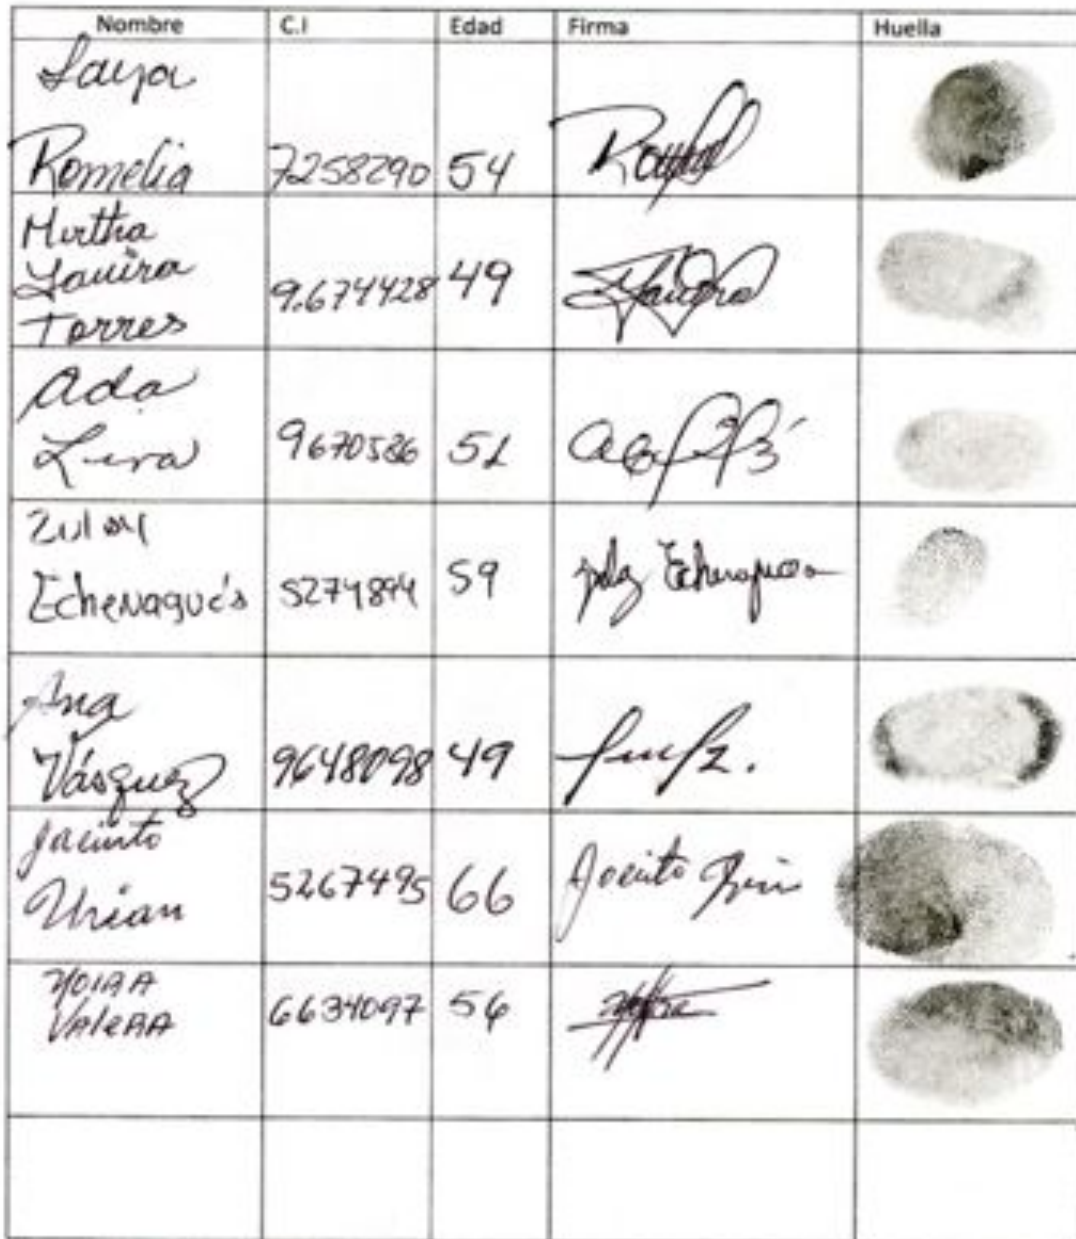 Nombre C.I Edad Firma Huella
Laya
Romelia 7258290 54
Mirtha
Yanira 9.674428 49
Torres
Ada
Lira 9670586 51
Zulay
Echenagucia 5274894 59 Echenagucia
Ana
Vásquez 9648098 49
Jacinto
Urian 5267495 66 Jacinto
VALERA 6634097 56